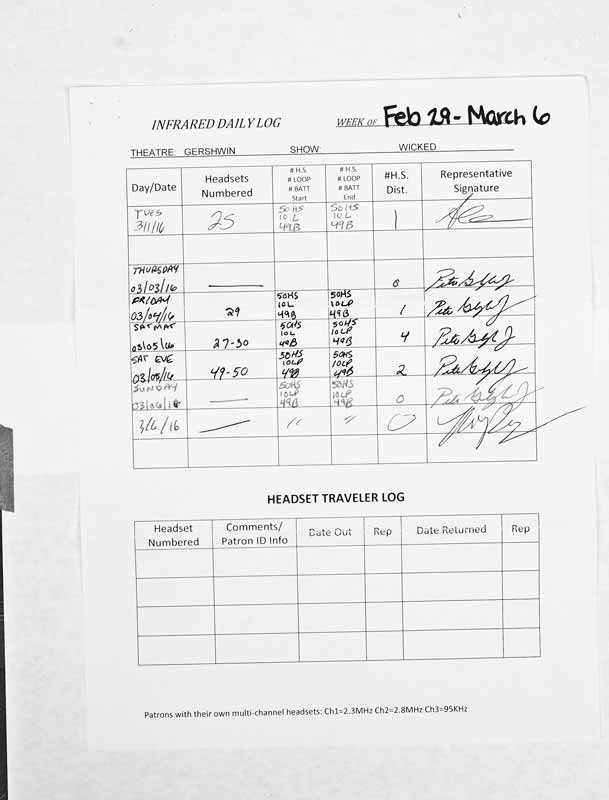 INFRARED DAILY LOG WEEK OF Feb 29 - March 6
THEATRE: GERSHWIN SHOW: WICKED
Day/Date Headsets Numbered # H.S. # LOOP # BATT Start # H.S. # LOOP # BATT End #H.S. Dist. Representative Signature
TUES 3/1/16 25 50HS 10 L 49B 50HS 10 L 49B 1
THURSDAY 03/03/16 — 0
FRIDAY 03/04/16 29 50HS 10L 49B 50HS 10LP 49B 1
SAT MAT 03/05/16 27-30 50HS 10L 49B 50HS 10LP 49B 4
SAT EVE 03/05/16 49-50 50HS 10LP 49B 50HS 10LP 49B 2
SUNDAY 03/06/16 — 50HS 10LP 49B 50HS 10LP 49B 0
3/6/16 — " " 0
HEADSET TRAVELER LOG
Headset Numbered Comments/ Patron ID Info Date Out Rep Date Returned Rep
Patrons with their own multi-channel headsets: Ch1=2.3MHz Ch2=2.8MHz Ch3=95KHz